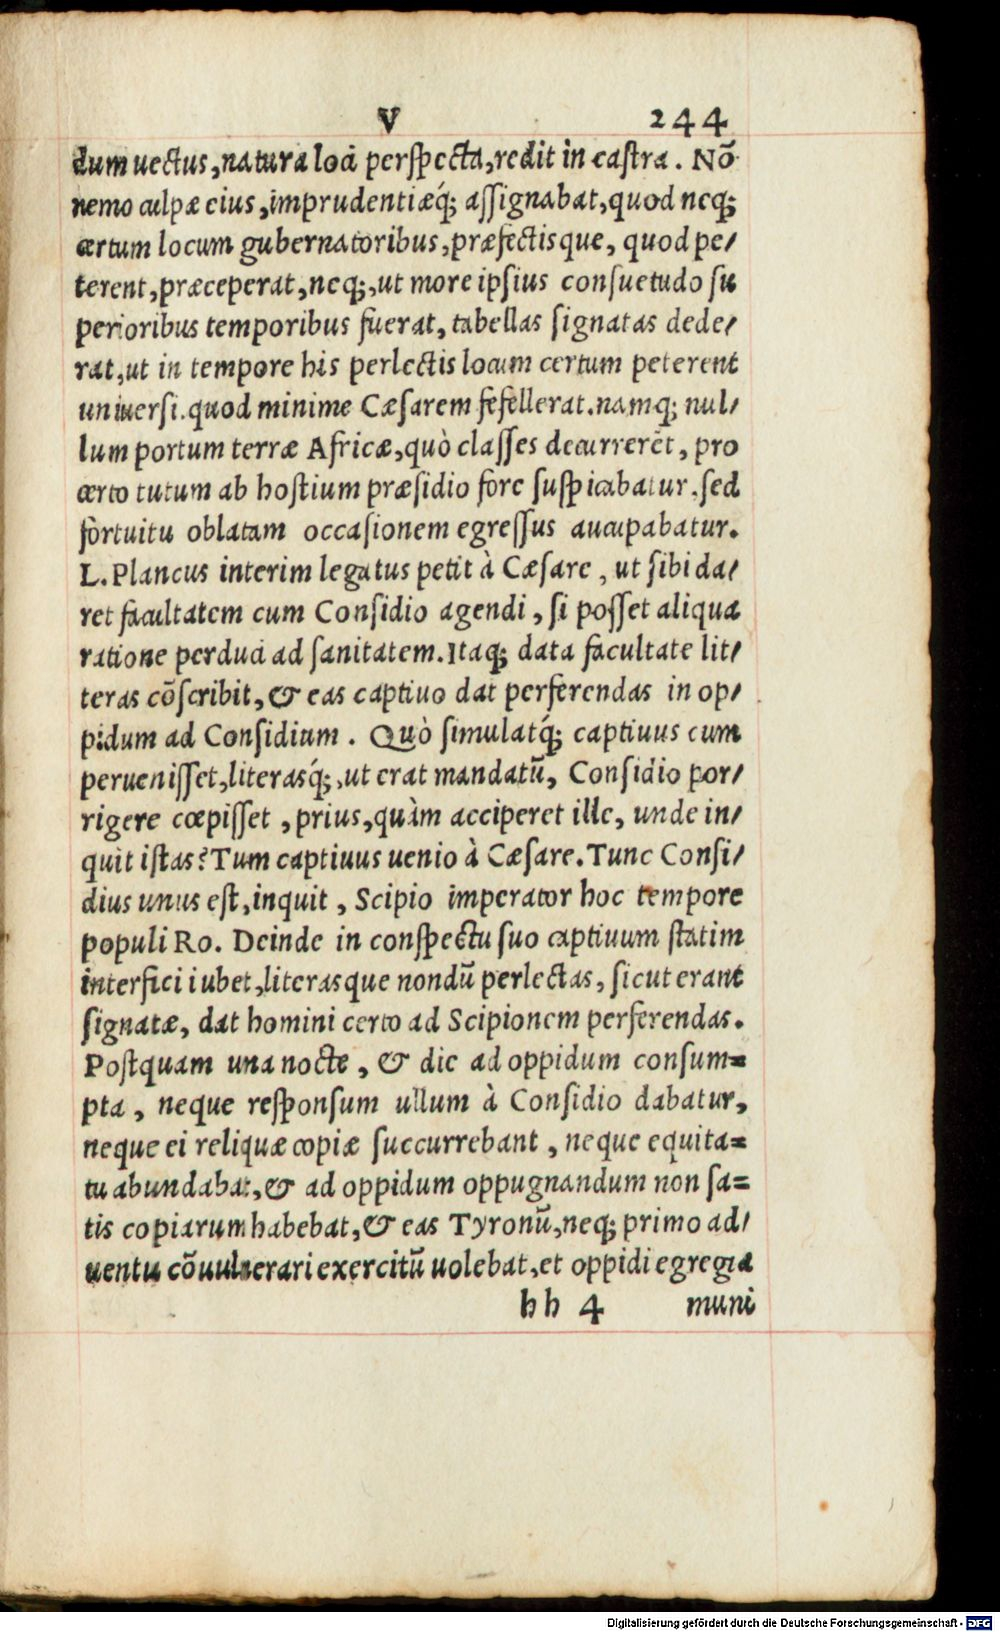 V 244
dum uectus, natura loci perspecta, redit in castra. Nō
nemo culpæ eius, imprudentiæq́; assignabat, quod neq;
certum locum gubernatoribus, præfectisque, quod pe/
terent, præceperat, neq;, ut more ipsius consuetudo su
perioribus temporibus fuerat, tabellas signatas dede/
rat, ut in tempore his perlectis locum certum peterent
uniuersi. quod minime Cæsarem fefellerat. namq; nul/
lum portum terræ Africæ, quò classes decurrerēt, pro
certo tutum ab hostium præsidio fore suspicabatur. sed
fortuitu oblatam occasionem egressus aucupabatur.
L. Plancus interim legatus petit à Cæsare, ut sibi da/
ret facultatem cum Considio agendi, si posset aliqua
ratione perduci ad sanitatem. Itaq; data facultate lit/
teras cōscribit, & eas captiuo dat perferendas in op/
pidum ad Considium. Quò simulatq́; captiuus cum
peruenisset, literasq́;, ut erat mandatū, Considio por/
rigere cœpisset, prius, quàm acciperet ille, unde in/
quit istas? Tum captiuus uenio à Cæsare. Tunc Consi/
dius unus est, inquit, Scipio imperator hoc tempore
populi Ro. Deinde in conspectu suo captiuum statim
interfici iubet, literasque nondū perlectas, sicut erant
signatæ, dat homini certo ad Scipionem perferendas.
Postquam una nocte, & die ad oppidum consum=
pta, neque responsum ullum à Considio dabatur,
neque ei reliquæ copiæ succurrebant, neque equita=
tu abundabat, & ad oppidum oppugnandum non sa=
tis copiarum habebat, & eas Tyronū, neq; primo ad/
uentu cōuulnerari exercitū uolebat, et oppidi egregia
hh 4 muni
Digitalisierung gefördert durch die Deutsche Forschungsgemeinschaft - DFG